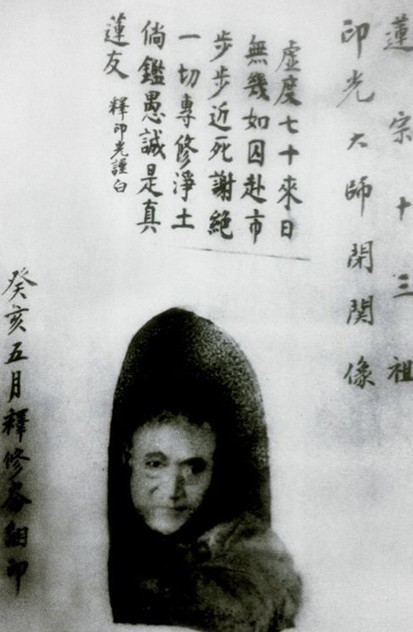 蓮宗十三祖
印光大師閉關像
虛度七十來日
無幾如囚赴市
步步近死謝絕
一切專修淨土
倘鑑愚誠是真
蓮友 釋印光謹白
癸亥五月釋修
印